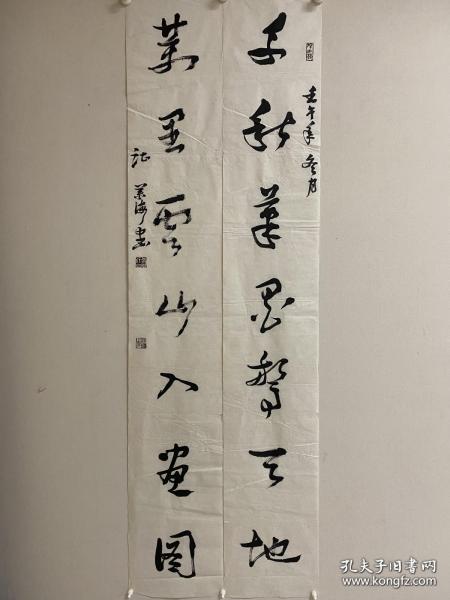 千秋笔墨惊天地
壬午年冬月
万里云山入画图
孔夫子旧书网
www.kongfz.com